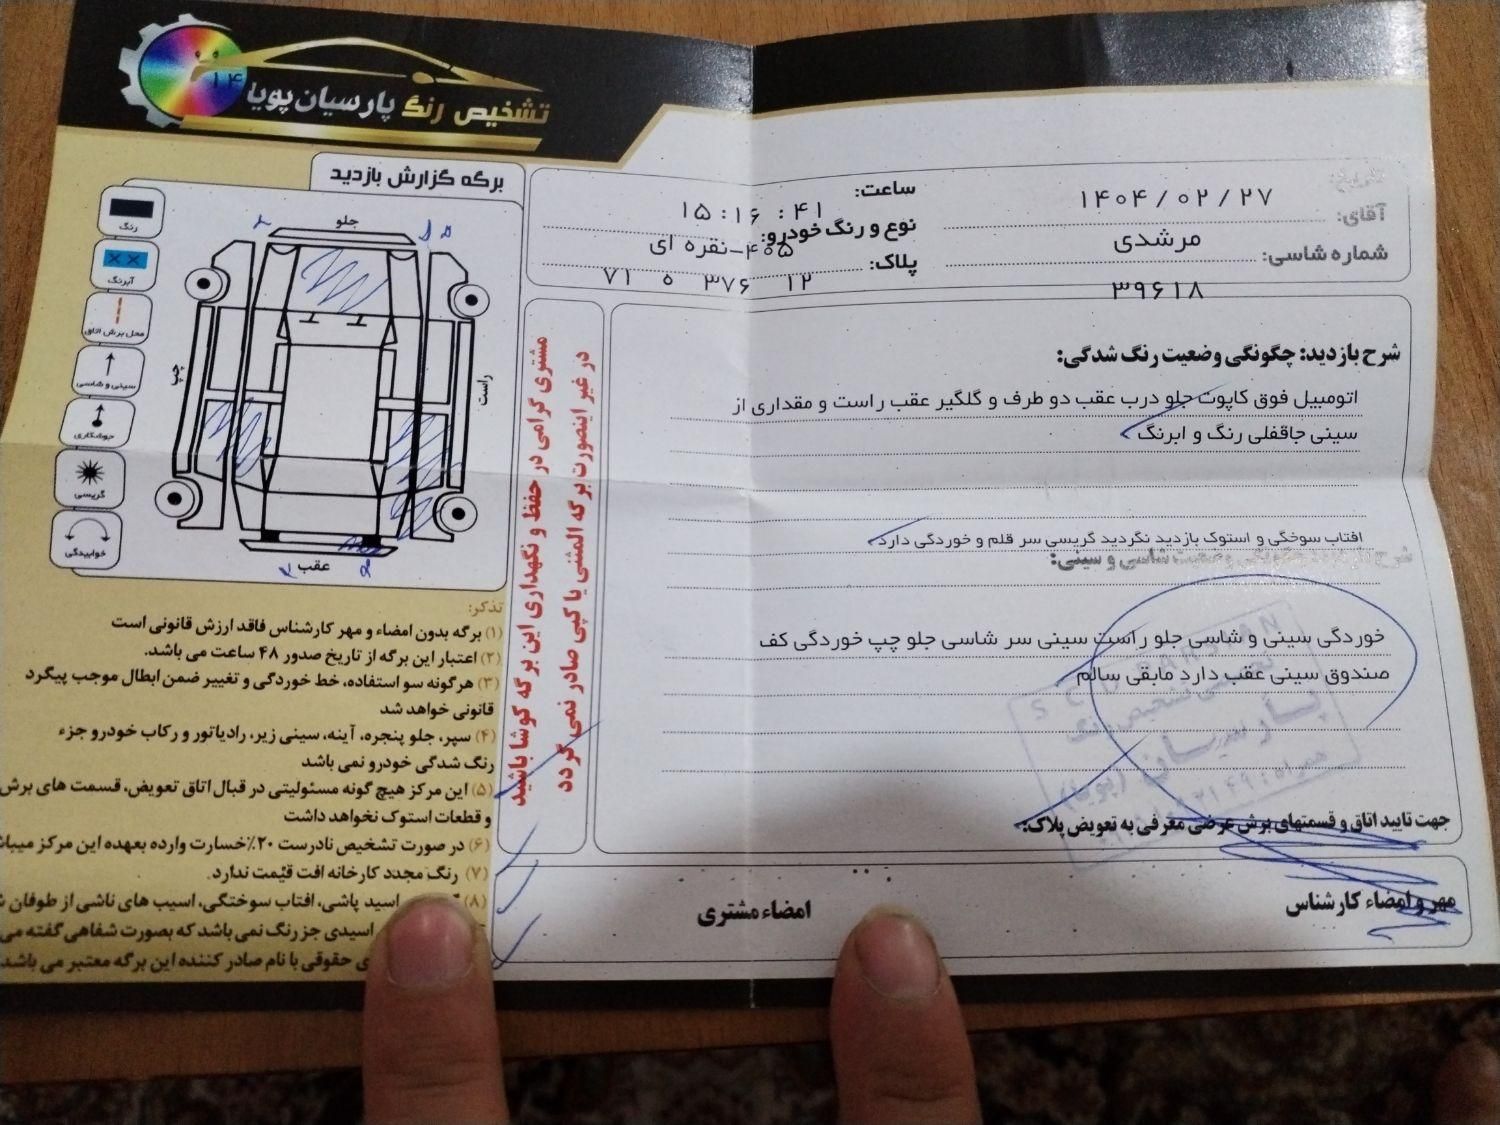 تشخیص رنگ پارسیان پویا
۱۴
برگه گزارش بازدید
جلو
راست
چپ
عقب
رنگ
آبرنگ
محل برش اتاق
سینی و شاسی
جوشکاری
گریسی
خوابیدگی
۱۴۰۴/۰۲/۲۷
آقای:
مرشدی
شماره شاسی:
۳۹۶۱۸
ساعت:
۱۵:۱۶:۴۱
نوع و رنگ خودرو:
۴۰۵-نقره ای
پلاک:
۷۱ ه ۳۷۶ ۱۲
شرح بازدید: چگونگی وضعیت رنگ شدگی:
اتومبیل فوق کاپوت جلو درب عقب دو طرف و گلگیر عقب راست و مقداری از
سینی جاقفلی رنگ و ابرنگ
افتاب سوختگی و استوک بازدید نگردید گریسی سر قلم و خوردگی دارد
وضعیت شاسی و سینی:
خوردگی سینی و شاسی جلو راست سینی سر شاسی جلو چپ خوردگی کف
صندوق سینی عقب دارد مابقی سالم
جهت تایید اتاق و قسمتهای برش عرضی معرفی به تعویض پلاک:
مهر و امضاء کارشناس
امضاء مشتری
مشتری گرامی در حفظ و نگهداری این برگه کوشا باشید
در غیر اینصورت برگه المثنی یا کپی صادر نمی گردد
تذکر:
۱) برگه بدون امضاء و مهر کارشناس فاقد ارزش قانونی است
۲) اعتبار این برگه از تاریخ صدور ۴۸ ساعت می باشد.
۳) هرگونه سو استفاده، خط خوردگی و تغییر ضمن ابطال موجب پیگرد
قانونی خواهد شد
۴) سپر، جلو پنجره، آینه، سینی زیر، رادیاتور و رکاب خودرو جزء
رنگ شدگی خودرو نمی باشد
۵) این مرکز هیچ گونه مسئولیتی در قبال اتاق تعویض، قسمت های برش
و قطعات استوک نخواهد داشت
۶) در صورت تشخیص نادرست ۲۰٪ خسارت وارده بعهده این مرکز
۷) رنگ مجدد کارخانه افت قیمت ندارد.
۸) اسید پاشی، افتاب سوختگی، اسیب های ناشی از طوفان
اسیدی جز رنگ نمی باشد که بصورت شفاهی گفته می
حقوقی با نام صادر کننده این برگه معتبر می باشد